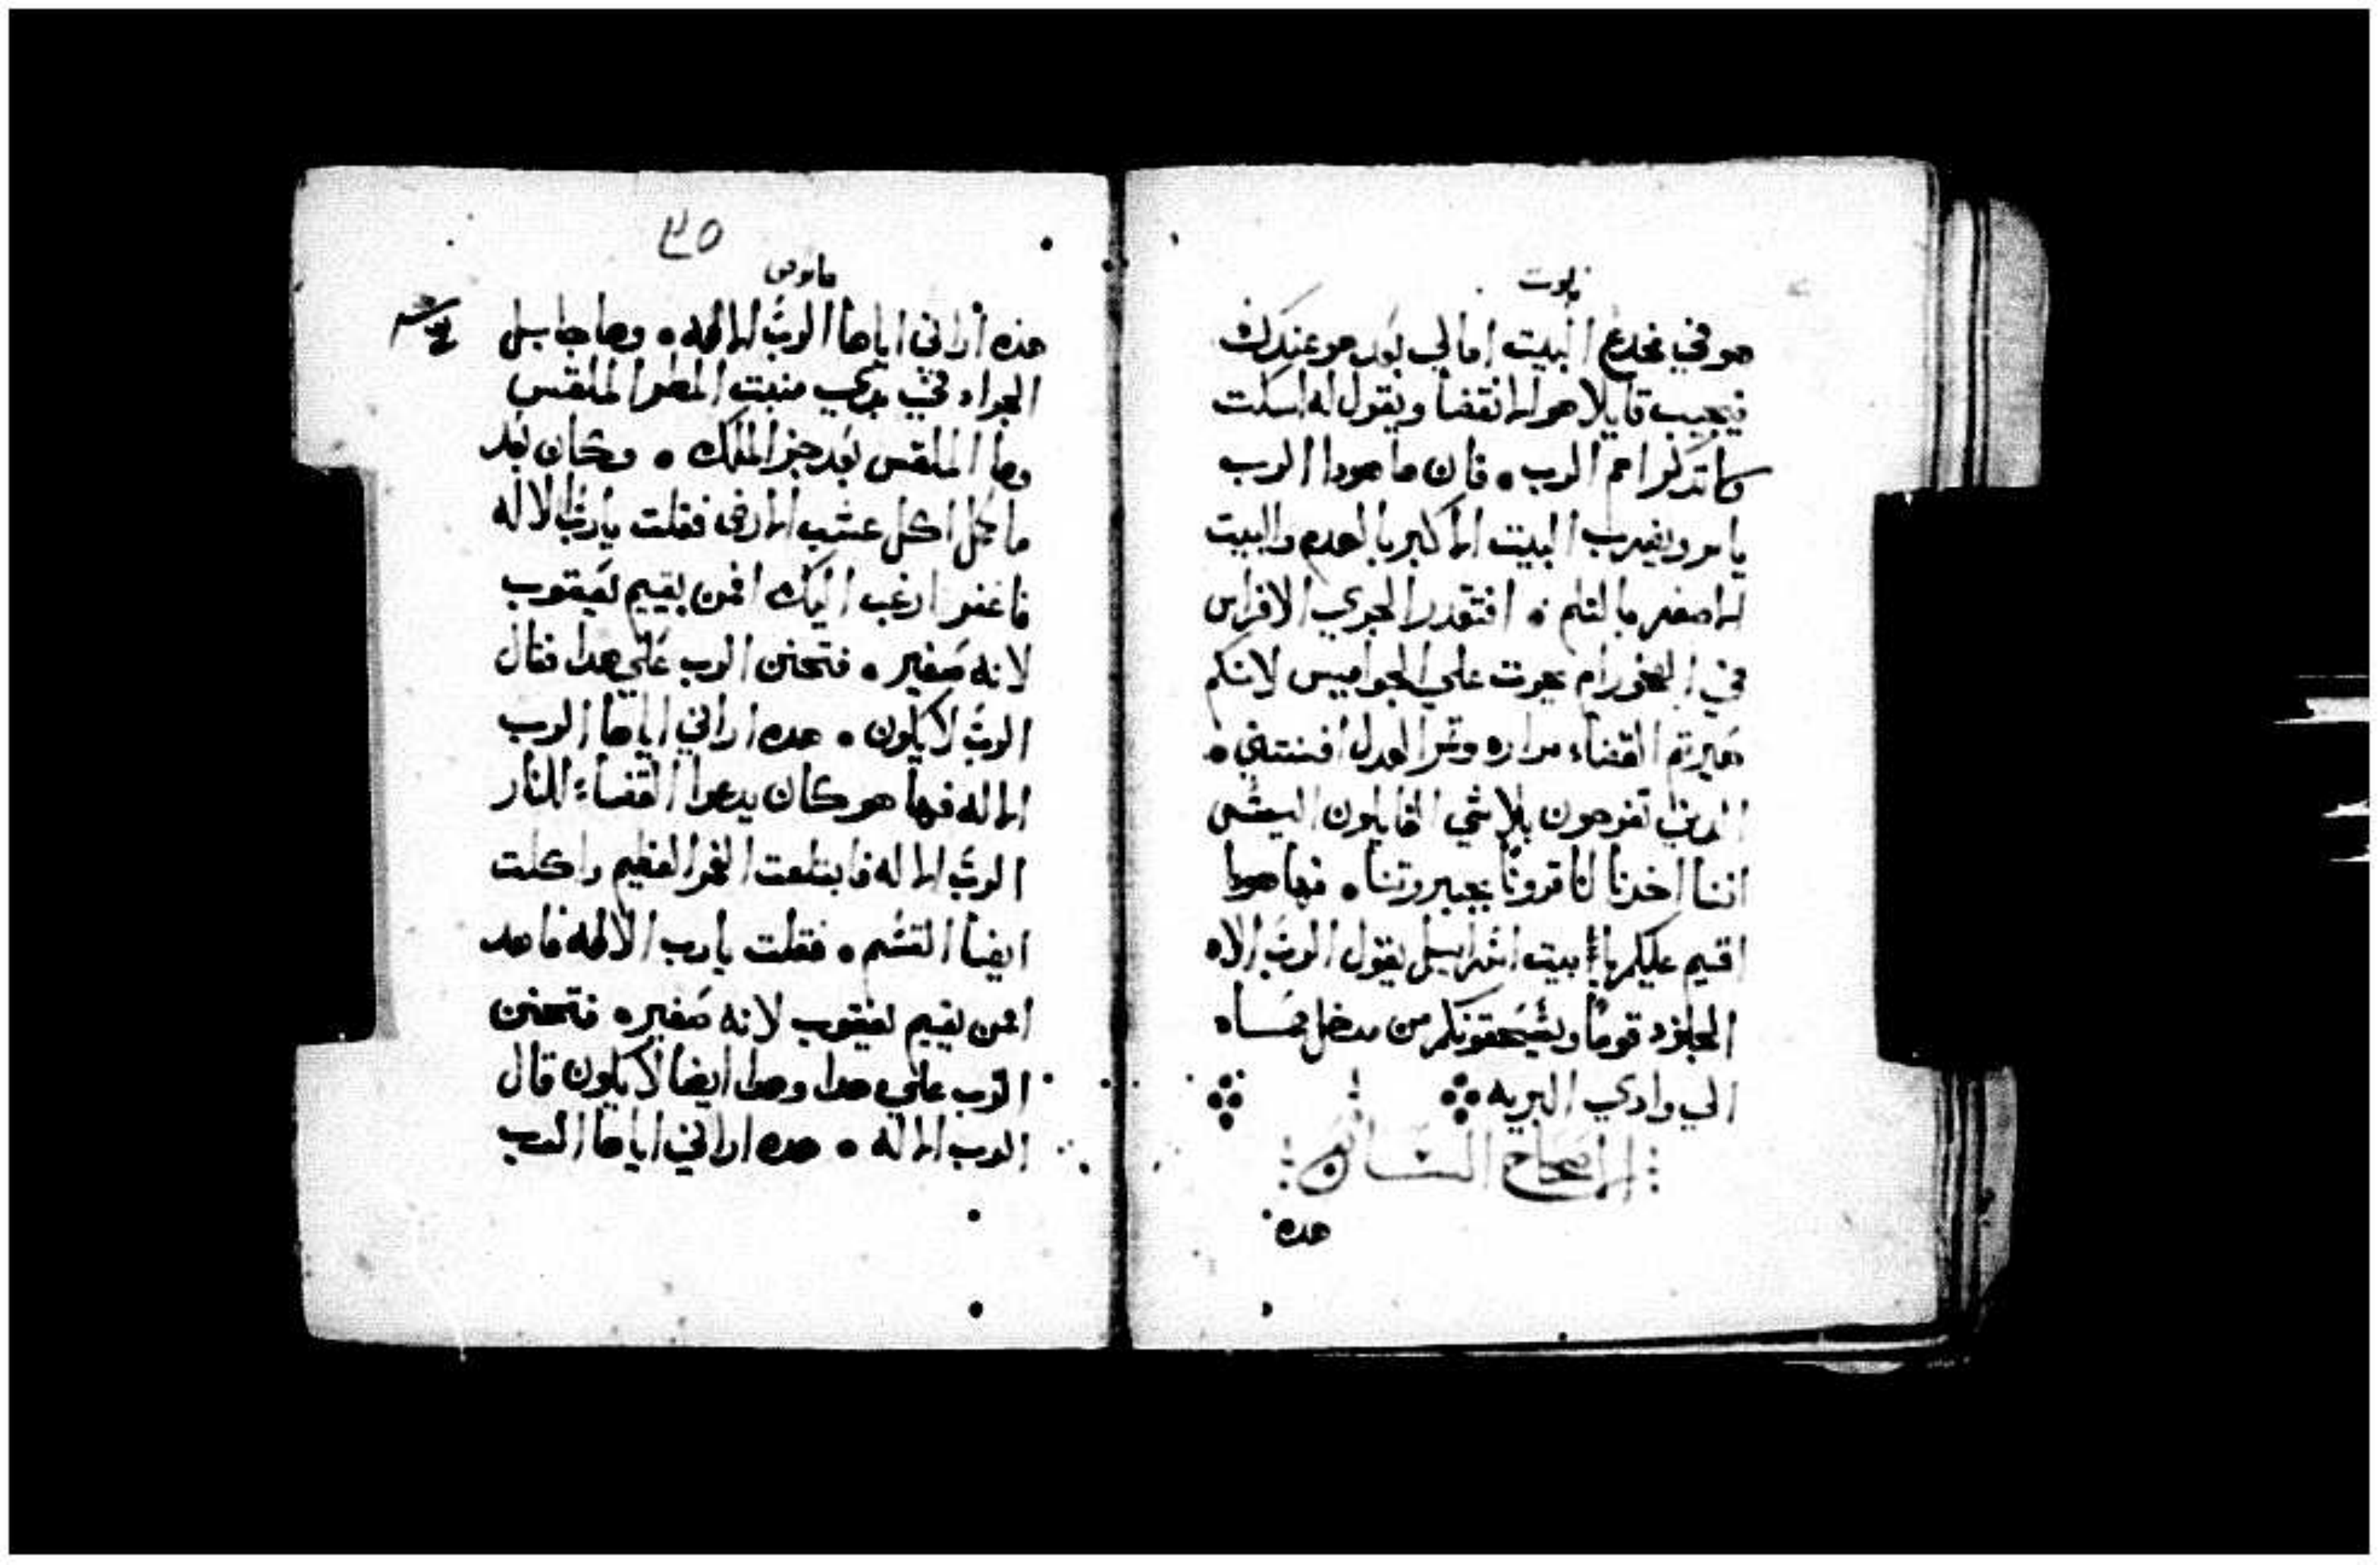 نبوت
هو في مخدع البيت امالي بعد هو عندك
فيجيب قايلا هو الانقضا ويقول له اسكت
كما تدكر اسم الرب ۰ فان ها هودا الرب
يامر ويضرب البيت الاكبر بالهدم والبيت
الاصغر بالثلم ۰ افتقدر الجري الافراس
في الصخور ام يحرث علي الجواميس لانكم
صيرتم القضاء مراره وثمر العدل افسنتين ۰
الدين تفرحون بلا شي القايلون اليس
اننا اخدنا لنا قرونا بجبروتنا ۰ فها هودا
اقيم عليكم يا بيت اسراييل يقول الرب الاه
الجنود قوما ويسحقونكم من مدخل حماه
الي وادي البريه
الاصحاح السابع
هده
٣٥
عاموص
هذه أراني اياها الرب الالاه ۰ وها جابل
الجراد في بدي منبت المطر الملقس
وها الملقس بعد جز الملك ۰ وكان بعد
ما كمل اكل عشب الارض فقلت يارب الاله
فاغفر ارغب اليك افمن يقيم ليعقوب
لانه صغير ۰ فتحنن الرب علي هدا فقال
الرب لا يكون ۰ هده اراني اياها الرب
الاله فها هو كان يدعوا القضاء للنار
الرب الاله فابتلعت الغمر العظيم واكلت
ايضا القسم ۰ فقلت يارب الاله فاهد
افمن يقيم ليعقوب لانه صغير ۰ فتحنن
الرب علي هدا وهدا ايضا لا يكون قال
الرب الاله ۰ هده اراني اياها الرب